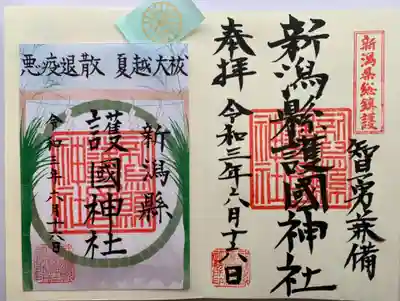 新潟県総鎮護
智勇兼備
新潟縣護國神社
奉拝
令和三年六月十六日
悪疫退散 夏越大祓
新潟縣
護國神社
令和三年六月十六日